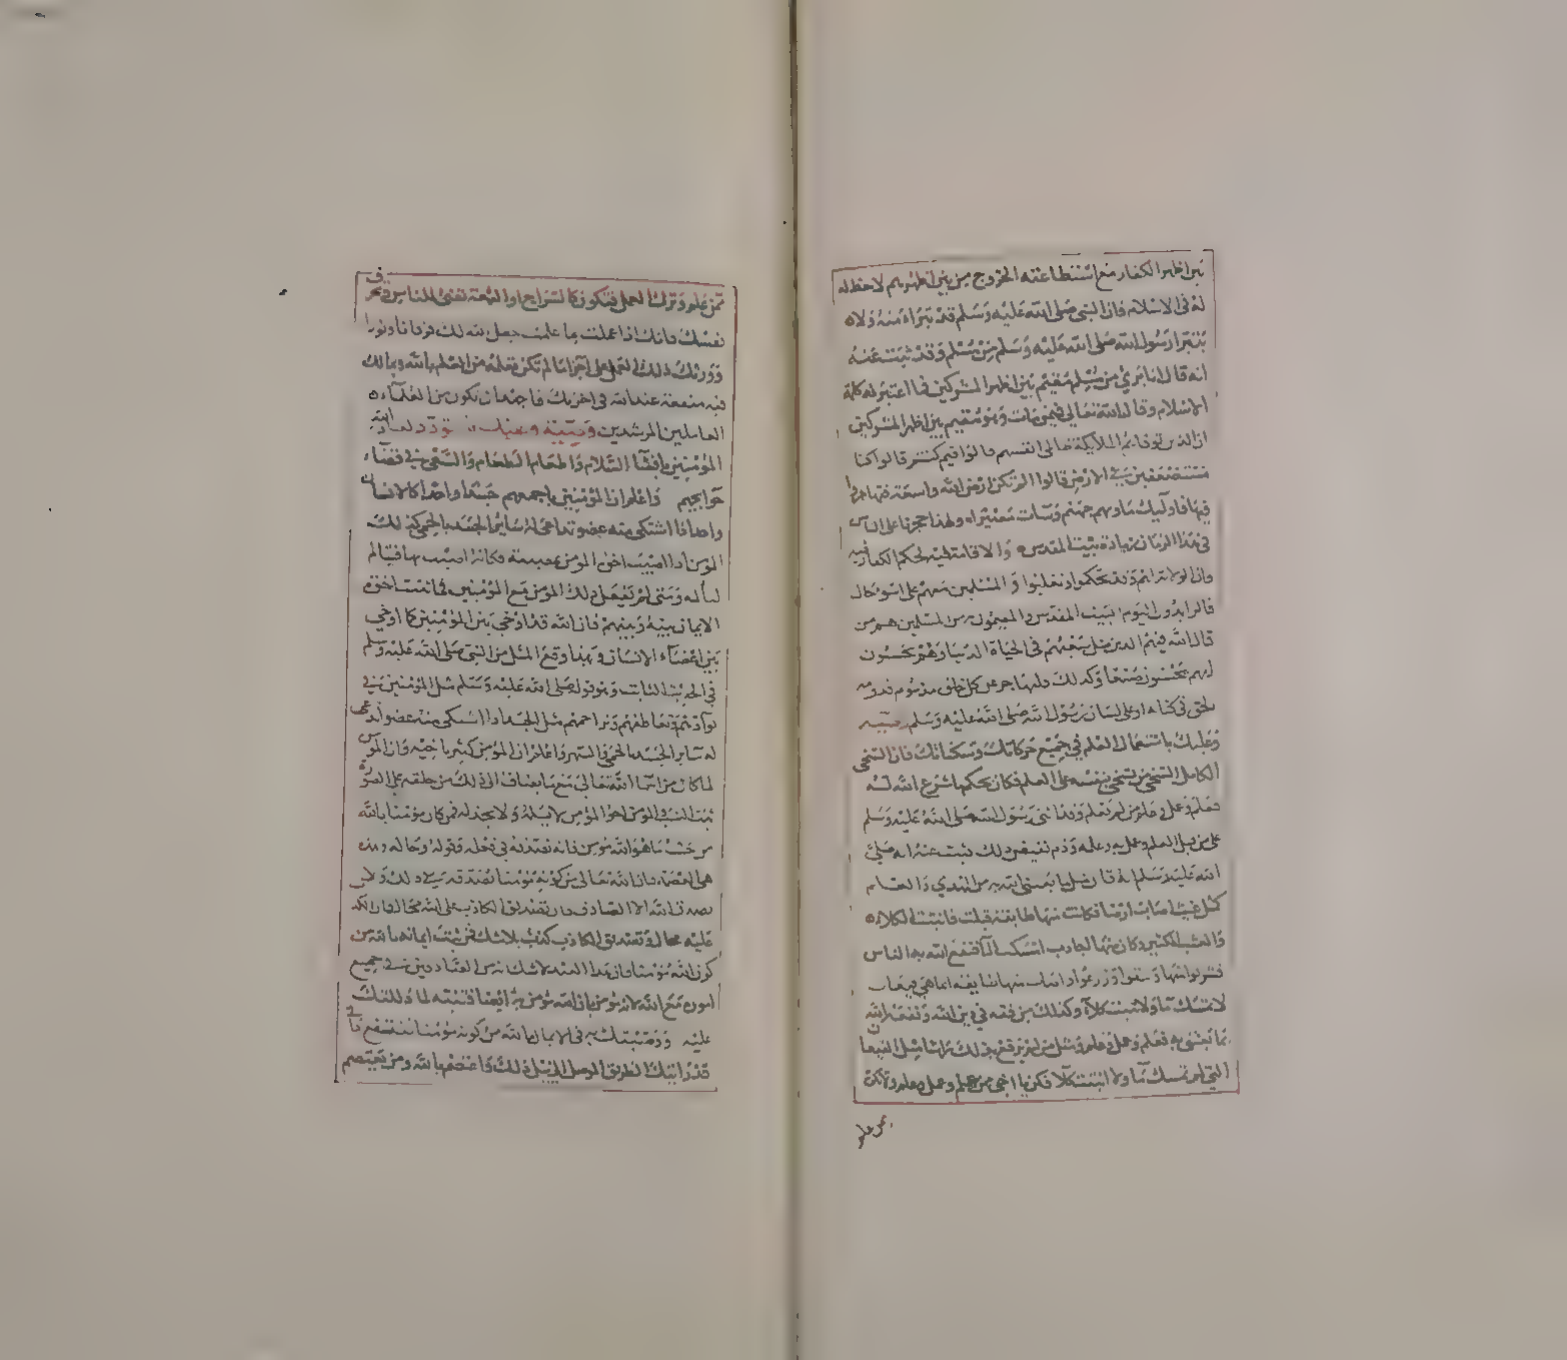 بين اظهر الكفار مع استطاعته الخروج من بين اظهرهم لا حظ له
له في الاسلام فان النبي صلى الله عليه وسلم قد تبراء منه ولا
يتبرا رسول الله صلى الله عليه وسلم من مسلم وقد ثبت عنه
انه قال انا بريء من مسلم مقيم بين اظهر المشركين فما اعتبر له كلمة
الاسلام وقال الله تعالى فيمن مات وهو مقيم بين اظهر المشركين
ان الذين توفاهم الملائكة ظالمى انفسهم قالوا فيم كنتم قالوا كنا
مستضعفين في الارض قالوا الم تكن ارض الله واسعة فتهاجروا
فيها فاوليك ماويهم جهنم وسات مصيرا ولهذا حجرنا على الناس
في هذا الزمان زيارة بيت المقدس والاقامة فيه لحكم الكفار فيه
فان الولاية لهم والتحكم في المسلمين والمسلمين معهم على اسوء حال
فالزايرون اليوم البيت المقدس والمقيمون من المسلمين هم من
قال الله فيهم الذين ضل سعيهم في الحياة الدنيا وهم يحسبون
انهم يحسنون صنعا وكذلك فلتهاجر عن كل خلق مذموم قد ذمه
الحق في كتابه او على لسان رسول الله صلى الله عليه وسلم وصيه
وعليك باستعمال العلم في جميع حركاتك وسكناتك فان السخي
الكامل السخي من تسخى بنفسه على العلم فكان بحكم ما شرع الله له
فعلم وعمل وعلم من لم يعلم وقد اثنى رسول الله صلى الله عليه وسلم
على من قبل العلم وعمل به وعلمه وذم نقيض ذلك ثبت عنه انه صلى
الله عليه وسلم انه قال مثل ما بعثنى الله به من الهدي والعلم
كمثل غيث اصاب ارضا فكانت منها طايفة قبلت فانبتت الكلاء
والعشب الكثير وكان منها اجادب امسكت الما فنفع الله بها الناس
فشربوا منها وسقوا وزرعوا واصاب منها طايفة انما هي قيعان
لا تمسك ماء ولا تنبت كلاء وكذلك من فقه في دين الله ونفعه الله
بما بعثنى به فعلم وعمل وعلم ومثل من لم يرفع بذلك راسا مثل القيعان
التي لم تمسك ما ولا انبتت كلا فكن يا اخي ممن علم وعمل وعلم ولا تكن
ممن علم
ممن علم وترك العمل فتكون كالسراج او الشمعة تضئ للناس وتحرق
نفسك فانك اذا عملت بما علمت جعل الله لك فرقانا ونورا
وورثك ذلك العمل علما آخر انما لم تكن تعلمه من العلم بالله وبما لك
فيه منفعة عند الله في اخرتك فاجهد ان تكون من العلماء
العاملين المرشدين وصية وعليك بالتودد لعباد الله
المؤمنين بافشا السلام واطعام الطعام والسعى في قضاء
حوايجهم واعلم ان المؤمنين باجمعهم جسد واحد كالانسان
واحد اذا اشتكى منه عضو تداعى له سائر الجسد بالحمى كذلك
المؤمن اذا اصيب اخوه المؤمن بمصيبة فكانه اصيب بها فيتالم
لتالمه ومتى لم يفعل ذلك المؤمن مع المؤمنين فما ثبتت اخوة
الايمان بينه وبينهم فان الله قد اوخى بين المؤمنين كما اوخي
بين اعضاء الانسان وبهذا وقع المثل من النبي صلى الله عليه وسلم
في الحديث الثابت وهو قوله صلى الله عليه وسلم مثل المؤمنين في
توادهم وتعاطفهم وتراحمهم مثل الجسد اذا اشتكى منه عضو تداعى
له ساير الجسد بالحمى والسهر واعلم ان المؤمن كثير باخيه وان المؤمن
لما كان من اسما الله تعالى مع ما ينضاف الى ذلك من خلقه على الصورة
ثبت النسب والمؤمن اخوا المؤمن لا يسلمه ولا يخذله فمن كان مؤمنا بالله
من حيث ما هو الله مؤمن فانه يصدقه في فعله وقوله وحاله وهذه
هي العصمة فان الله تعالى من كونه مؤمنا يصدقه في ذلك ولا
يصدق الله الا الصادق فان تصديق الكاذب على الله محال فان الكذب
عليه محال وتصديق الكاذب كذب بلا شك فمن ثبت ايمانه بالله من
كون الله مؤمنا فان هذا العبد لا شك انه من الصادقين في جميع
اموره مع الله لانه مؤمن بان الله مؤمن به ايضا فتنبه لما دللتك
عليه ووصيتك به في الايمان بالله من كونه مؤمنا تنتفع فاني
قد اريتك الطريق الموصل الى نيل ذلك واعتصم بالله ومن يعتصم